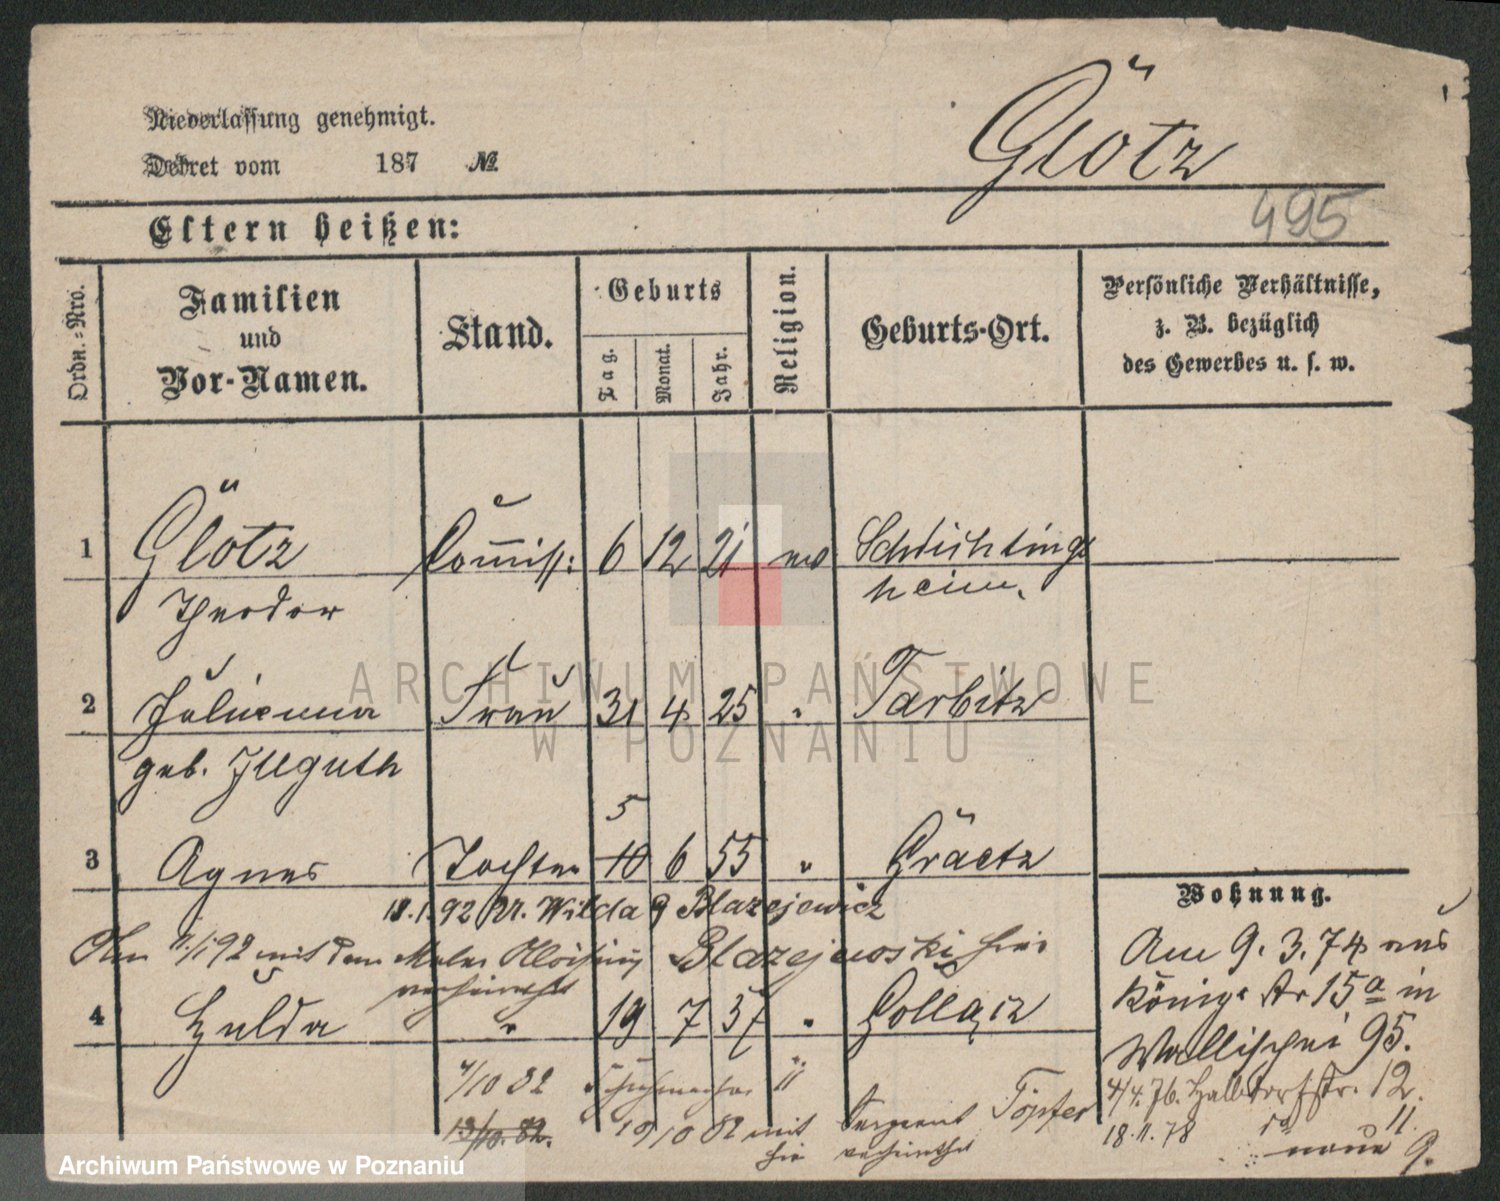 Niederlassung genehmigt.
Glötz
Dekret vom 187 №
495
Eltern heißen:
Ordn.=Nro.
Familien und Vor-Namen.
Stand.
Geburts
Tag. Monat. Jahr.
Religion.
Geburts-Ort.
Persönliche Verhältnisse, z. B. bezüglich des Gewerbes u. s. w.
1 Glötz Commiss: 6 12 21 ev Schlichtings
Theodor heim.
2 Julianna Frau 31 4 25 " Tarbitz
geb. Illguth
5
3 Agnes Tochter 10 6 55 " Grätz
Wohnung.
18.1.92 Wilda 9 Blazejewicz
Am 9. 3. 74 aus
1/192 mit dem Maler Blazejewski hier
verheirathet
König Str 15a in
4 Hulda " 19 7 57 " Gollacz
Wallischei 95.
4/10 82 11
4/4. 76. Halbdorfstr. 12.
13/10. 82. 19/10 82 mit Sergeant Töpfer
hier verheirathet
18.11.78 11.
neue 9.
ARCHIWUM PAŃSTWOWE
W POZNANIU
Archiwum Państwowe w Poznaniu